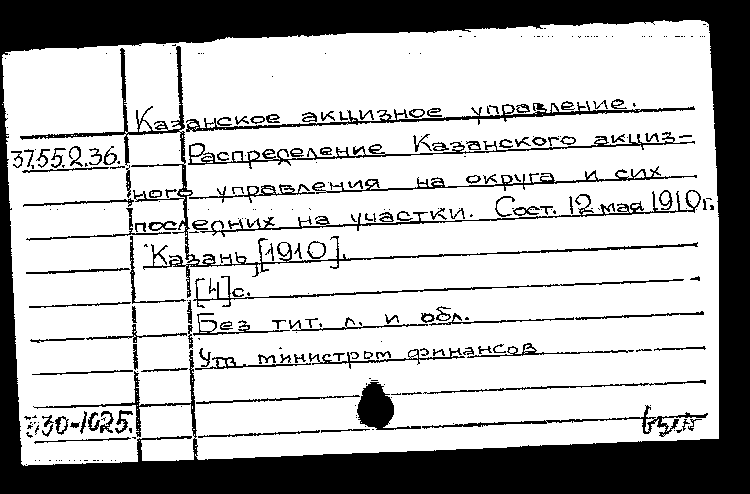 Казанское акцизное управление.
37.55.2.36. Распределение Казанского акциз-
ного управления на округа и сих
последних на участки. Сост. 12 мая 1910 г.
Казань, [1910].
[4] с.
Без тит. л. и обл.
Утв. министром финансов
530-1025.